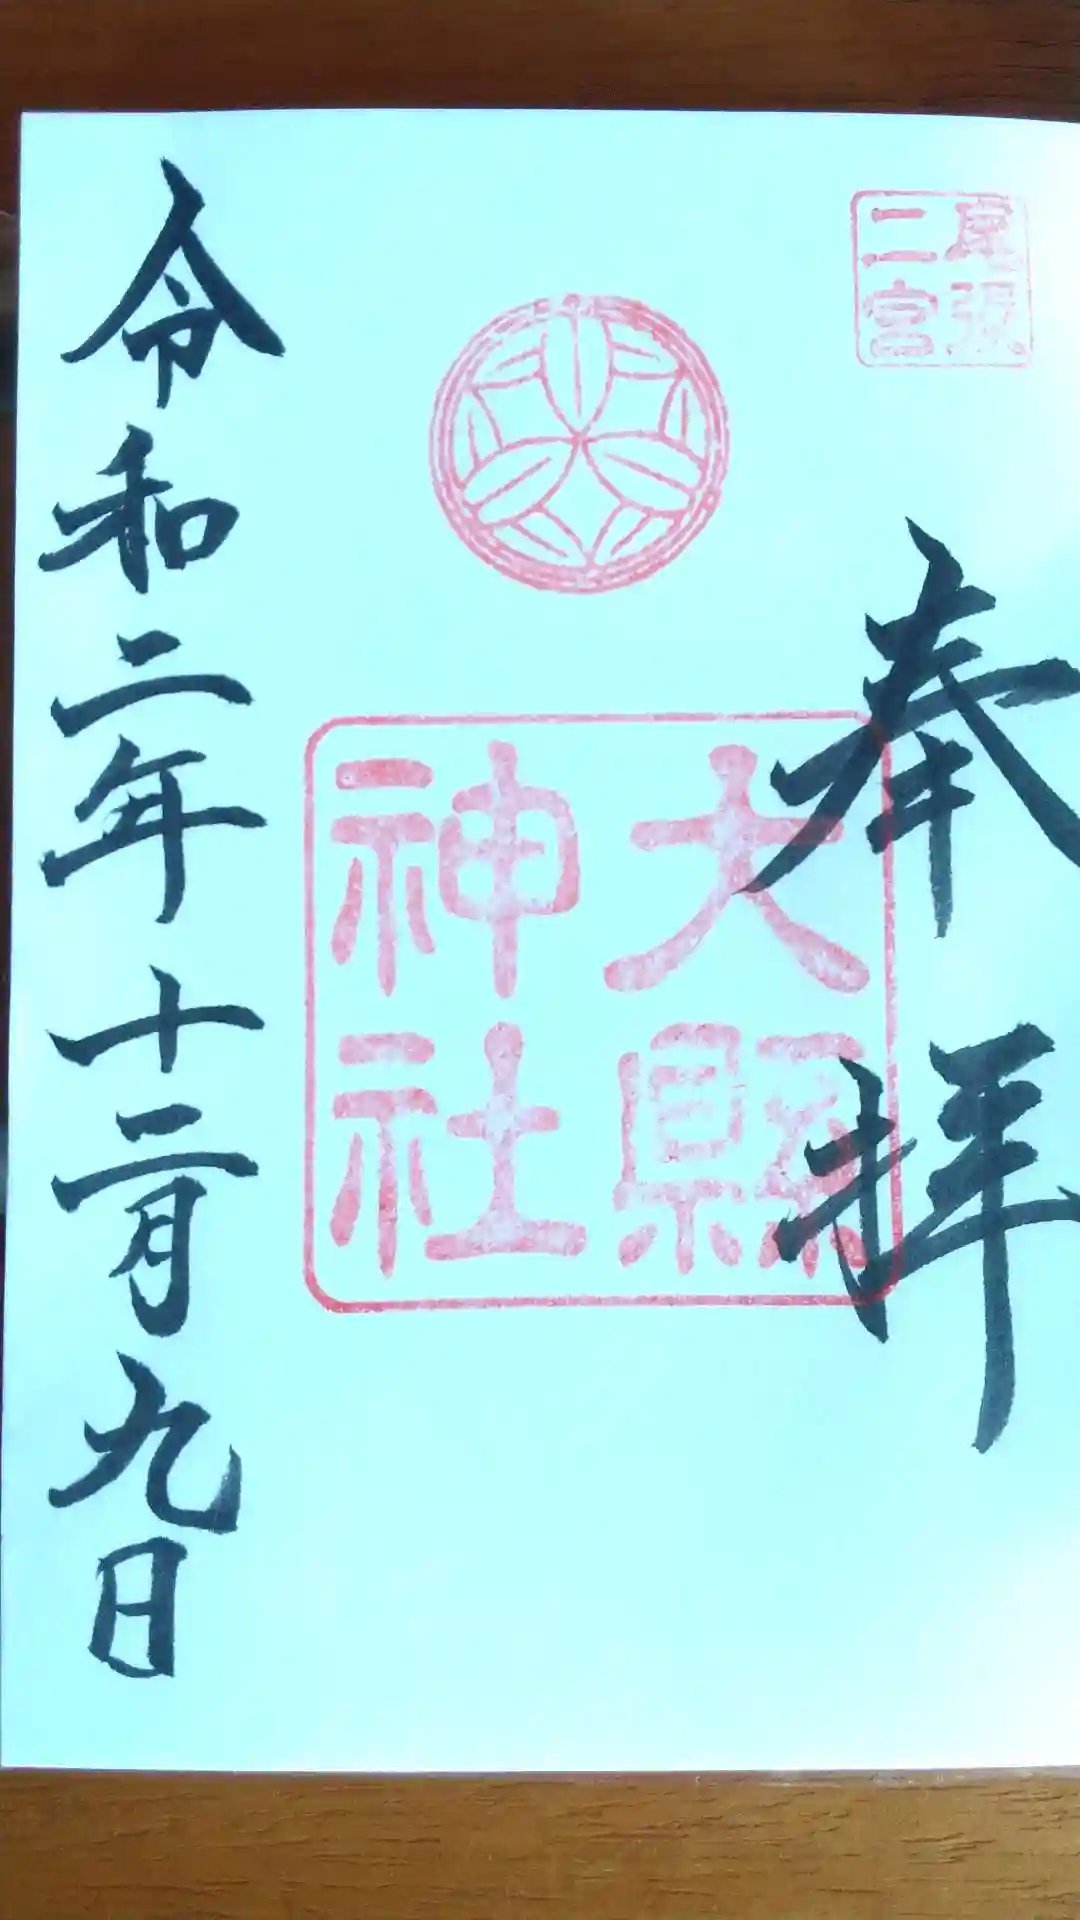 尾張
二宮
奉拝
大縣
神社
令和二年十二月九日